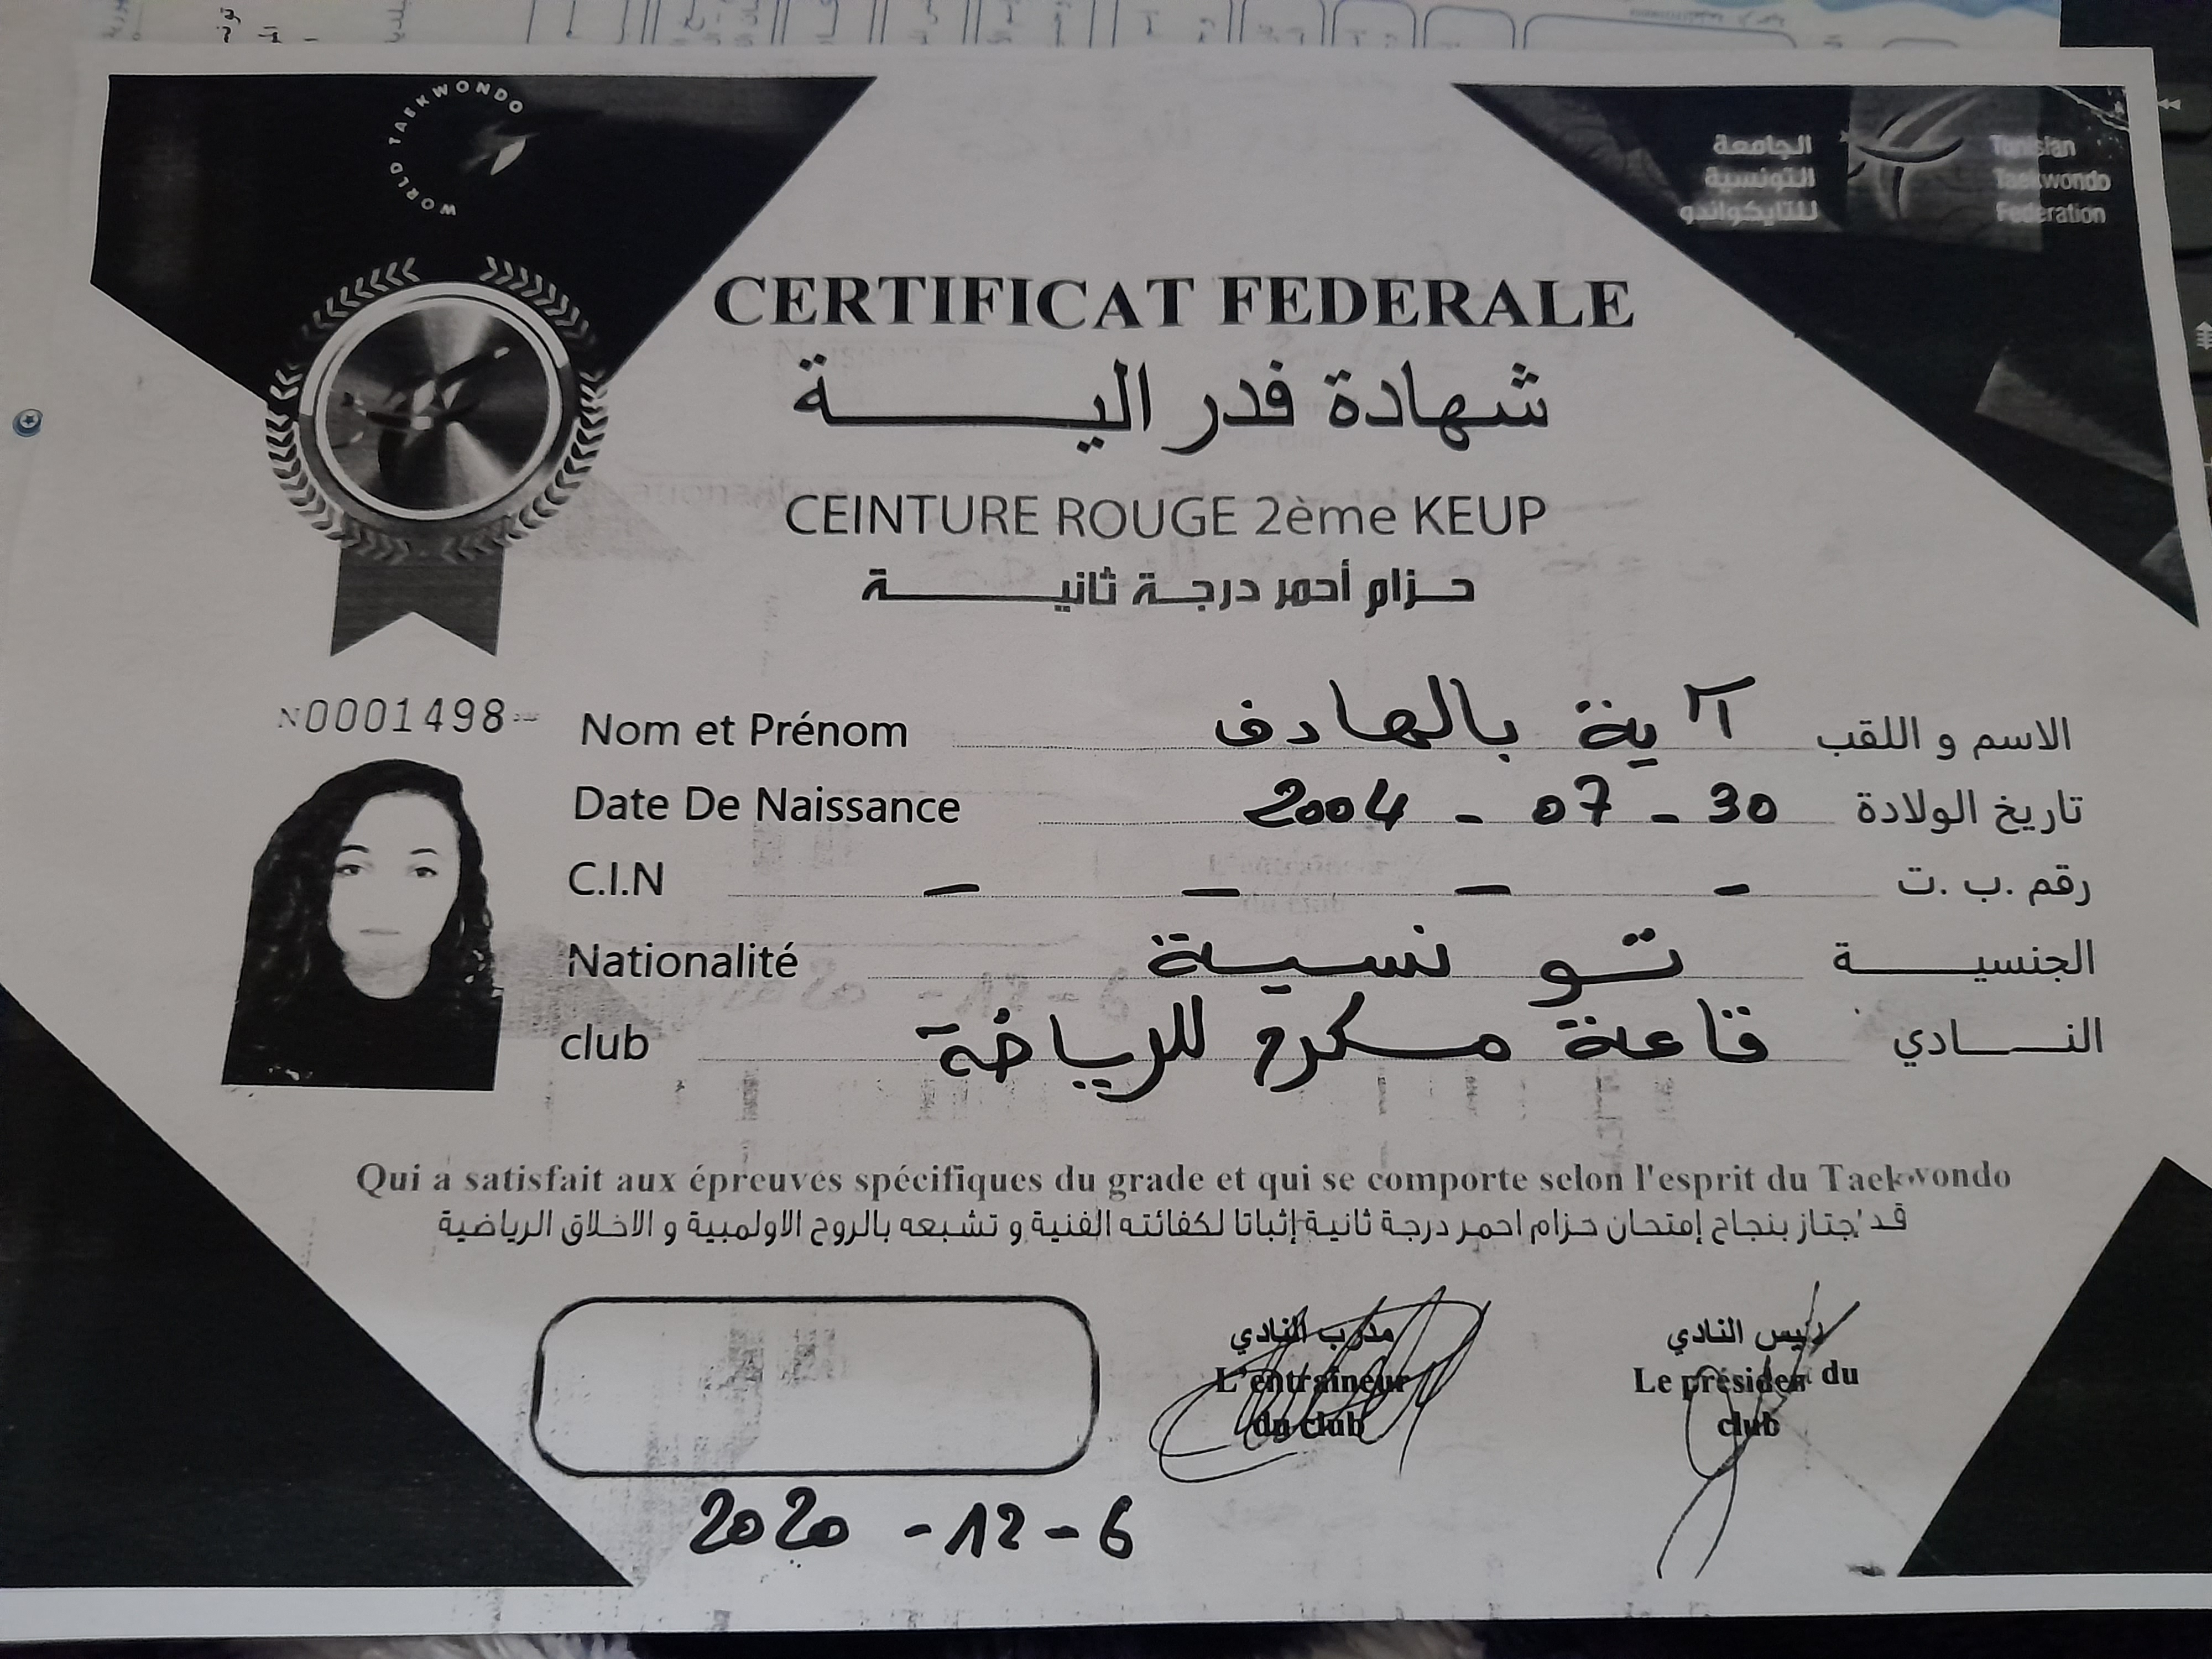 WORLD TAEKWONDO
الجامعة
التونسية
للتايكواندو
Tunisian
Taekwondo
Federation
CERTIFICAT FEDERALE
شهادة فدرالية
CEINTURE ROUGE 2ème KEUP
حزام أحمر درجة ثانية
N0001498
Nom et Prénom آية بالهادف الاسم و اللقب
Date De Naissance 2004 - 07 - 30 تاريخ الولادة
C.I.N - - - - رقم .ب .ت
Nationalité تونسية الجنسية
club قاعة مسكرم للرياضة النادي
Qui a satisfait aux épreuves spécifiques du grade et qui se comporte selon l'esprit du Taekwondo
قد إجتاز بنجاح إمتحان حزام احمر درجة ثانية إثباتا لكفائته الفنية و تشبعه بالروح الاولمبية و الاخلاق الرياضية
مدرب النادي
L'entraîneur
du club
رئيس النادي
Le président du
club
2020 - 12 - 6